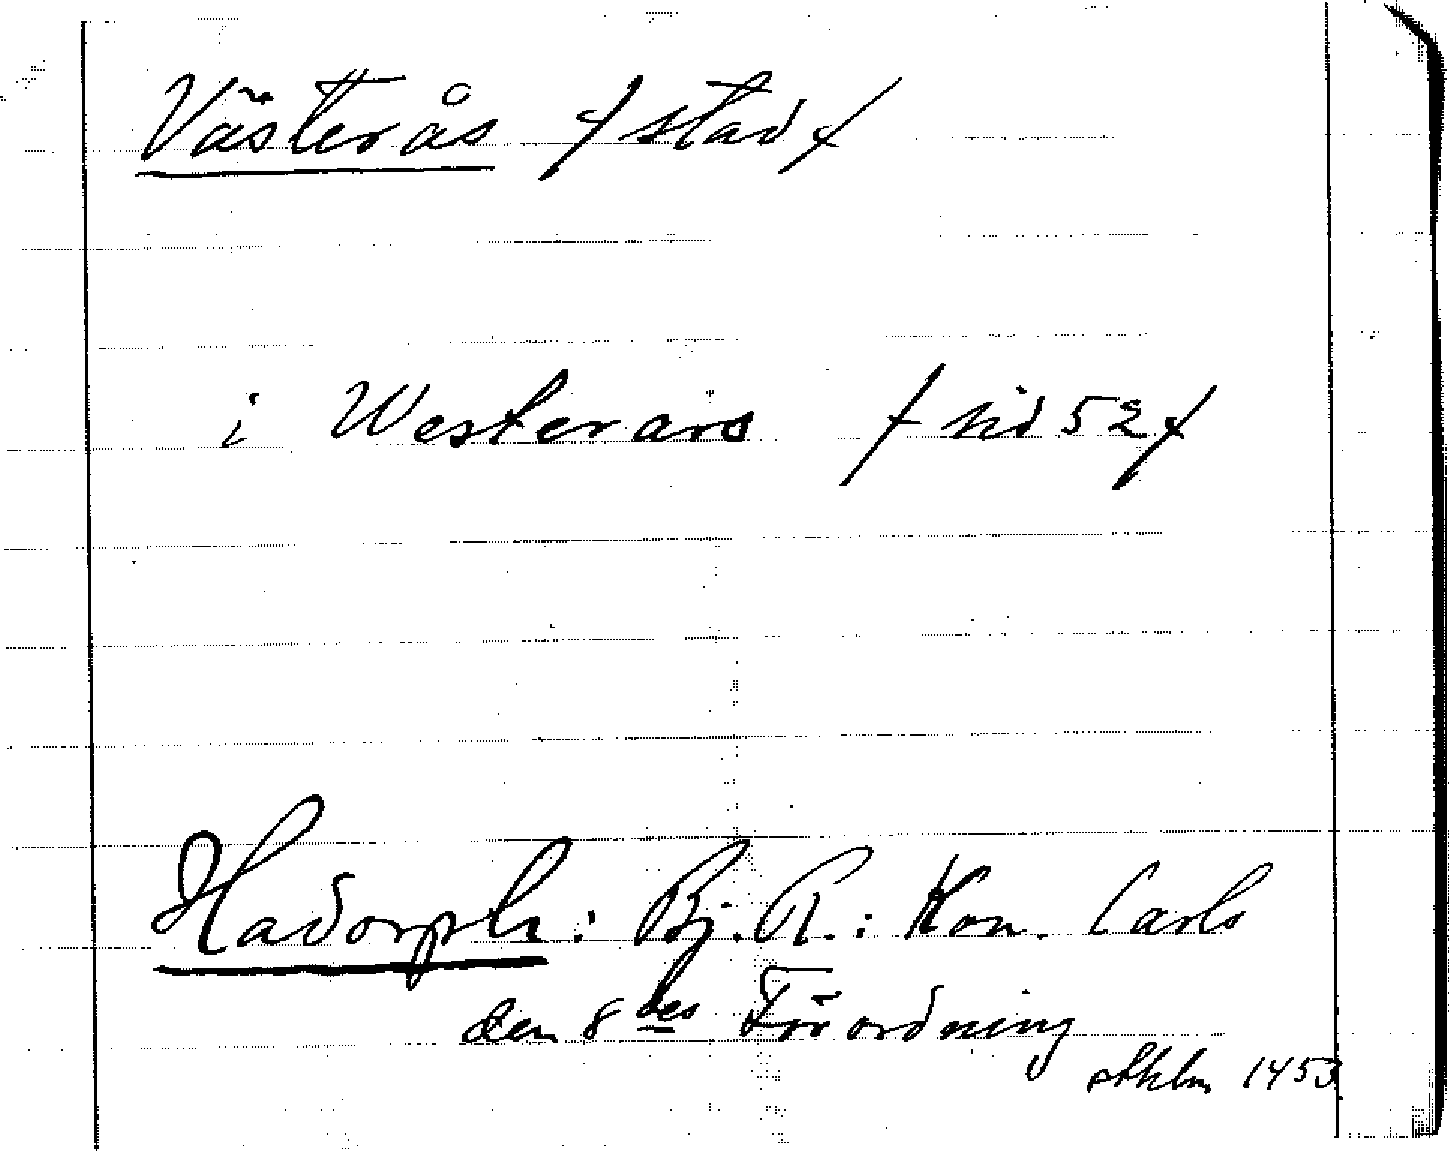 Västerås /stad/
i Westerars /sid 52/
Hadorph: Bj. R.: Kon. Carls
den 8des Förordning
sthlm 1453